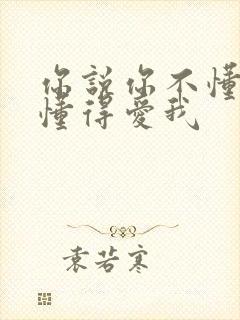 你說你不懂
懂得愛我
袁若寒